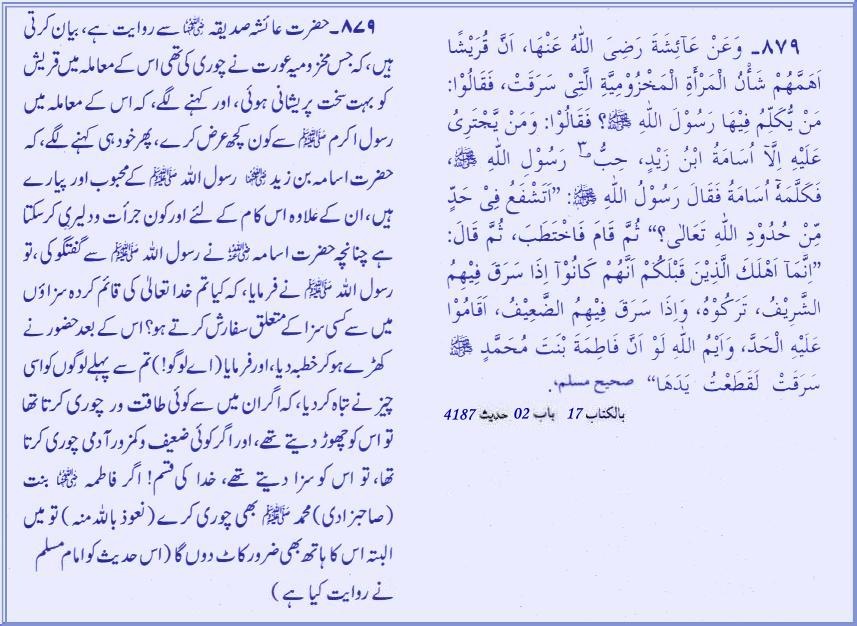 ۸۷۹۔ وَعَنْ عَآئِشَةَ رَضِیَ اللّٰهُ عَنْهَا، اَنَّ قُرَیْشًا
اَهَمَّهُمْ شَأْنُ الْمَرْأَةِ الْمَخْزُوْمِیَّةِ الَّتِیْ سَرَقَتْ، فَقَالُوْا:
مَنْ یُّكَلِّمُ فِیْهَا رَسُوْلَ اللّٰهِ ﷺ؟ فَقَالُوْا: وَمَنْ یَّجْتَرِئُ
عَلَیْهِ اِلَّآ اُسَامَةُ ابْنُ زَیْدٍ، حِبُّ رَسُوْلِ اللّٰهِ ﷺ،
فَكَلَّمَهٗٓ اُسَامَةُ فَقَالَ رَسُوْلُ اللّٰهِ ﷺ: ”اَتَشْفَعُ فِیْ حَدٍّ
مِّنْ حُدُوْدِ اللّٰهِ تَعَالٰی؟“ ثُمَّ قَامَ فَاخْتَطَبَ، ثُمَّ قَالَ:
”اِنَّمَآ اَهْلَكَ الَّذِیْنَ قَبْلَكُمْ اَنَّهُمْ كَانُوْآ اِذَا سَرَقَ فِیْهِمُ
الشَّرِیْفُ، تَرَكُوْهُ، وَاِذَا سَرَقَ فِیْهِمُ الضَّعِیْفُ، اَقَامُوْا
عَلَیْهِ الْحَدَّ، وَایْمُ اللّٰهِ لَوْ اَنَّ فَاطِمَةَ بْنَتَ مُحَمَّدٍ ﷺ
سَرَقَتْ لَقَطَعْتُ یَدَهَا“ صحیح مسلم،.
بالكتاب 17 باب 02 حدیث 4187
۸۷۹۔ حضرت عائشہ صدیقہ رضی اللہ عنہا سے روایت ہے، بیان کرتی
ہیں، کہ جس مخزومیہ عورت نے چوری کی تھی اس کے معاملہ میں قریش
کو بہت سخت پریشانی ہوئی، اور کہنے لگے، کہ اس کے معاملہ میں
رسول اکرم ﷺ سے کون کچھ عرض کرے، پھر خود ہی کہنے لگے، کہ
حضرت اسامہ بن زید رضی اللہ عنہما رسول اللہ ﷺ کے محبوب اور پیارے
ہیں، ان کے علاوہ اس کام کے لئے اور کون جرأت و دلیری کر سکتا
ہے چنانچہ حضرت اسامہ رضی اللہ عنہ نے رسول اللہ ﷺ سے گفتگو کی، تو
رسول اللہ ﷺ نے فرمایا، کہ کیا تم خدا تعالیٰ کی قائم کردہ سزاؤں
میں سے کسی سزا کے متعلق سفارش کرتے ہو؟ اس کے بعد حضور نے
کھڑے ہو کر خطبہ دیا، اور فرمایا (اے لوگو!) تم سے پہلے لوگوں کو اسی
چیز نے تباہ کر دیا، کہ اگر ان میں سے کوئی طاقت ور چوری کرتا تھا
تو اس کو چھوڑ دیتے تھے، اور اگر کوئی ضعیف و کمزور آدمی چوری کرتا
تھا، تو اس کو سزا دیتے تھے، خدا کی قسم! اگر فاطمہ رضی اللہ عنہا بنت
(صاحبزادی) محمد ﷺ بھی چوری کرے (نعوذ باللہ منہ) تو میں
البتہ اس کا ہاتھ بھی ضرور کاٹ دوں گا (اس حدیث کو امام مسلم
نے روایت کیا ہے)